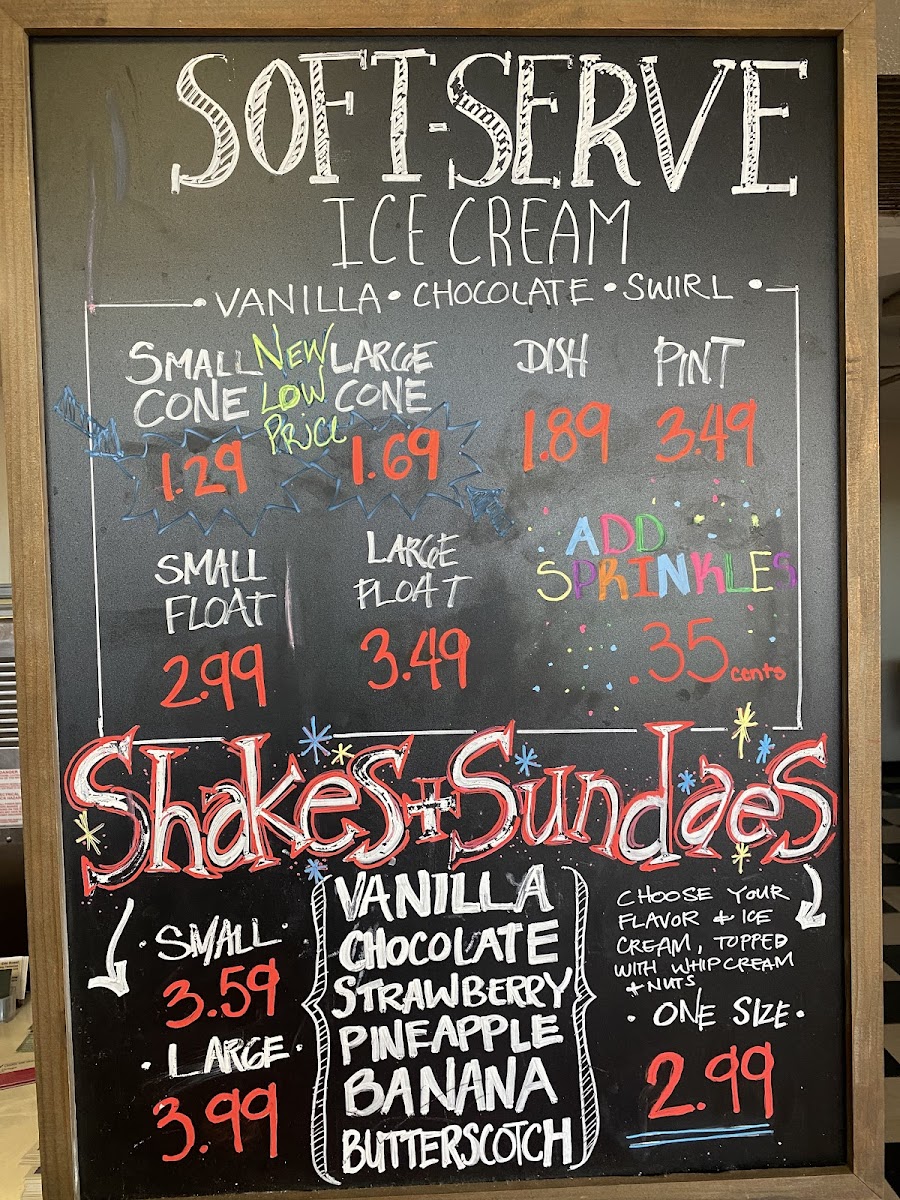 SOFT-SERVE
ICE CREAM
VANILLA • CHOCOLATE • SWIRL
SMALL CONE
NEW LOW PRICE
LARGE CONE
DISH
PINT
1.29
1.69
1.89
3.49
SMALL
FLOAT
2.99
LARGE
FLOAT
3.49
ADD
SPRINKLES
.35 cents
Shakes + Sundaes
• SMALL •
3.59
• LARGE •
3.99
VANILLA
CHOCOLATE
STRAWBERRY
PINEAPPLE
BANANA
BUTTERSCOTCH
CHOOSE YOUR
FLAVOR + ICE
CREAM, TOPPED
WITH WHIP CREAM
+ NUTS
• ONE SIZE •
2.99